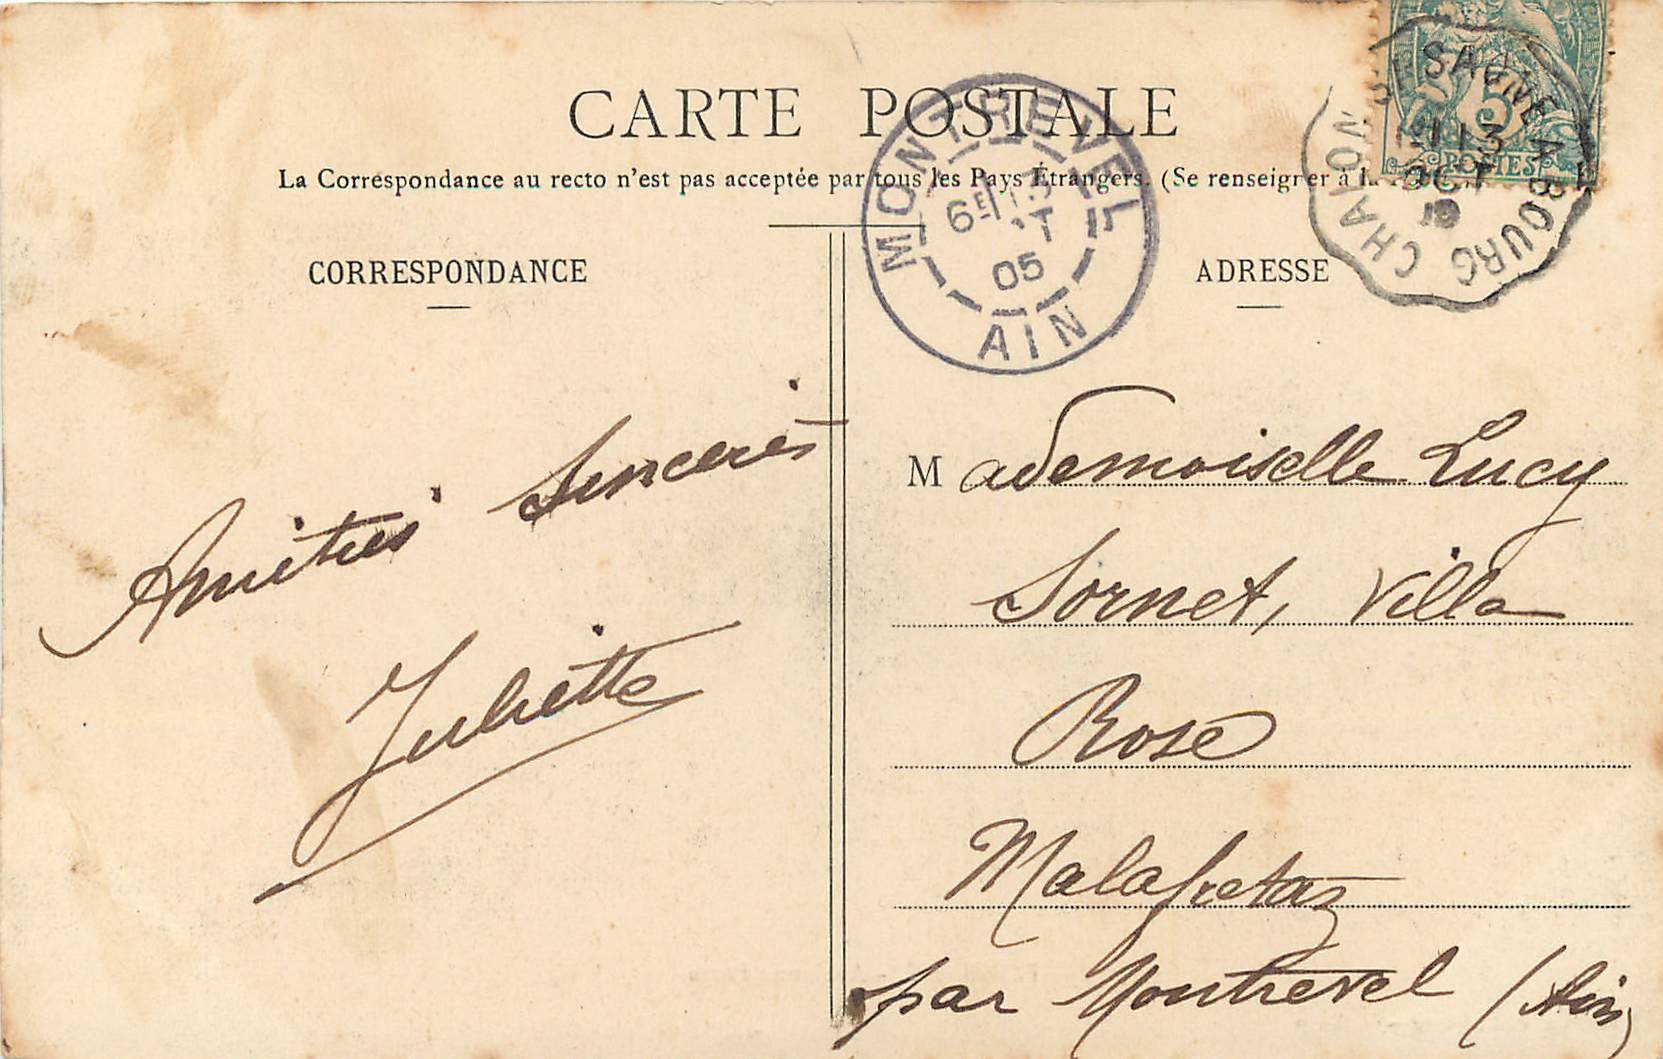 CARTE POSTALE
La Correspondance au recto n'est pas acceptée par tous les Pays Étrangers. (Se renseigner à la
CORRESPONDANCE
ADRESSE
MONTREVEL
6E 13
05
AIN
5
POSTES
CHALON S SAONE A BOURG
13
OCT
Amitiés Sincères
Juliette
Mademoiselle Lucy
Sornet, Villa
Rose
Malafretaz
par Montrevel (Ain)